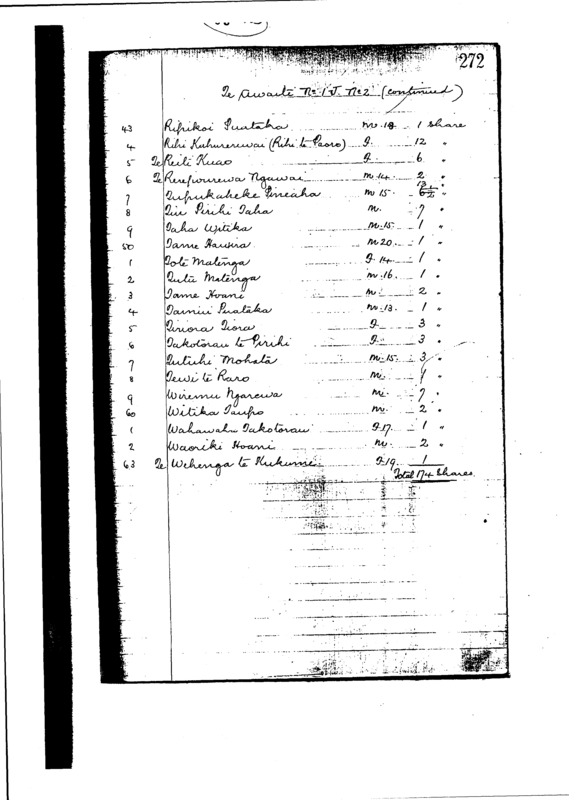 272
Te Awaite No 1 J. No 2 (continued)
43 Ripikoi Puataka m. 18 1 share
4 Rihi Kuhurerewai (Rihi te Paoro) f. 12 "
5 Te Reiti Kuao f. 6 "
6 Te Rerepourewa Ngawai m 14 2 "
7 Tupukaheke Pineaha m 15
8 Tiu Pirihi Taha m. 7 "
9 Taha Witika m. 15 1 "
50 Tame Hawira m 20 1 "
1 Tote Matenga f. 14 1 "
2 Tutu Matenga m. 16 1 "
3 Tame Hoani m. 2 "
4 Tamui Puataka m. 13 1 "
5 Tiriora Tiora f. 3 "
6 Takotorau te Pirihi f. 3 "
7 Tutuhi Mohota m. 15 3 "
8 Tewi te Raro m. 1 "
9 Wiremu Ngarewa m. 7 "
60 Witika Taupo m. 2 "
1 Wahawaha Takotorau f 17 1 "
2 Waoriki Hoani m. 2 "
63 Te Wehenga te Kukume f 19 1
Total 174 Shares